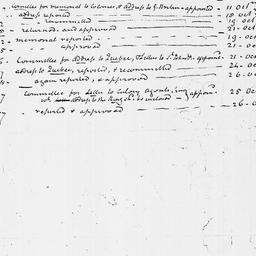 Committee for memorial to Colonies, & address to G. Britain - appointed - 11 Oct
address reported - 18 Oct
- recommitted - 19 Oct
returned and approved - 21 - Oct
memorial reported - 19 - Oct
approved - 21 - Oct
Committee for address to Quebec, & Letters to St. Johns &c. appoint. 21 - Oct
address to Quebec, reported, & recommitted - 24 - Oct
again reported, & approved - 26 - O
Committee for Letter to Colony agents, appoint. 25 Oc
address to the King to be inclosed
reported & approved - 26 - O